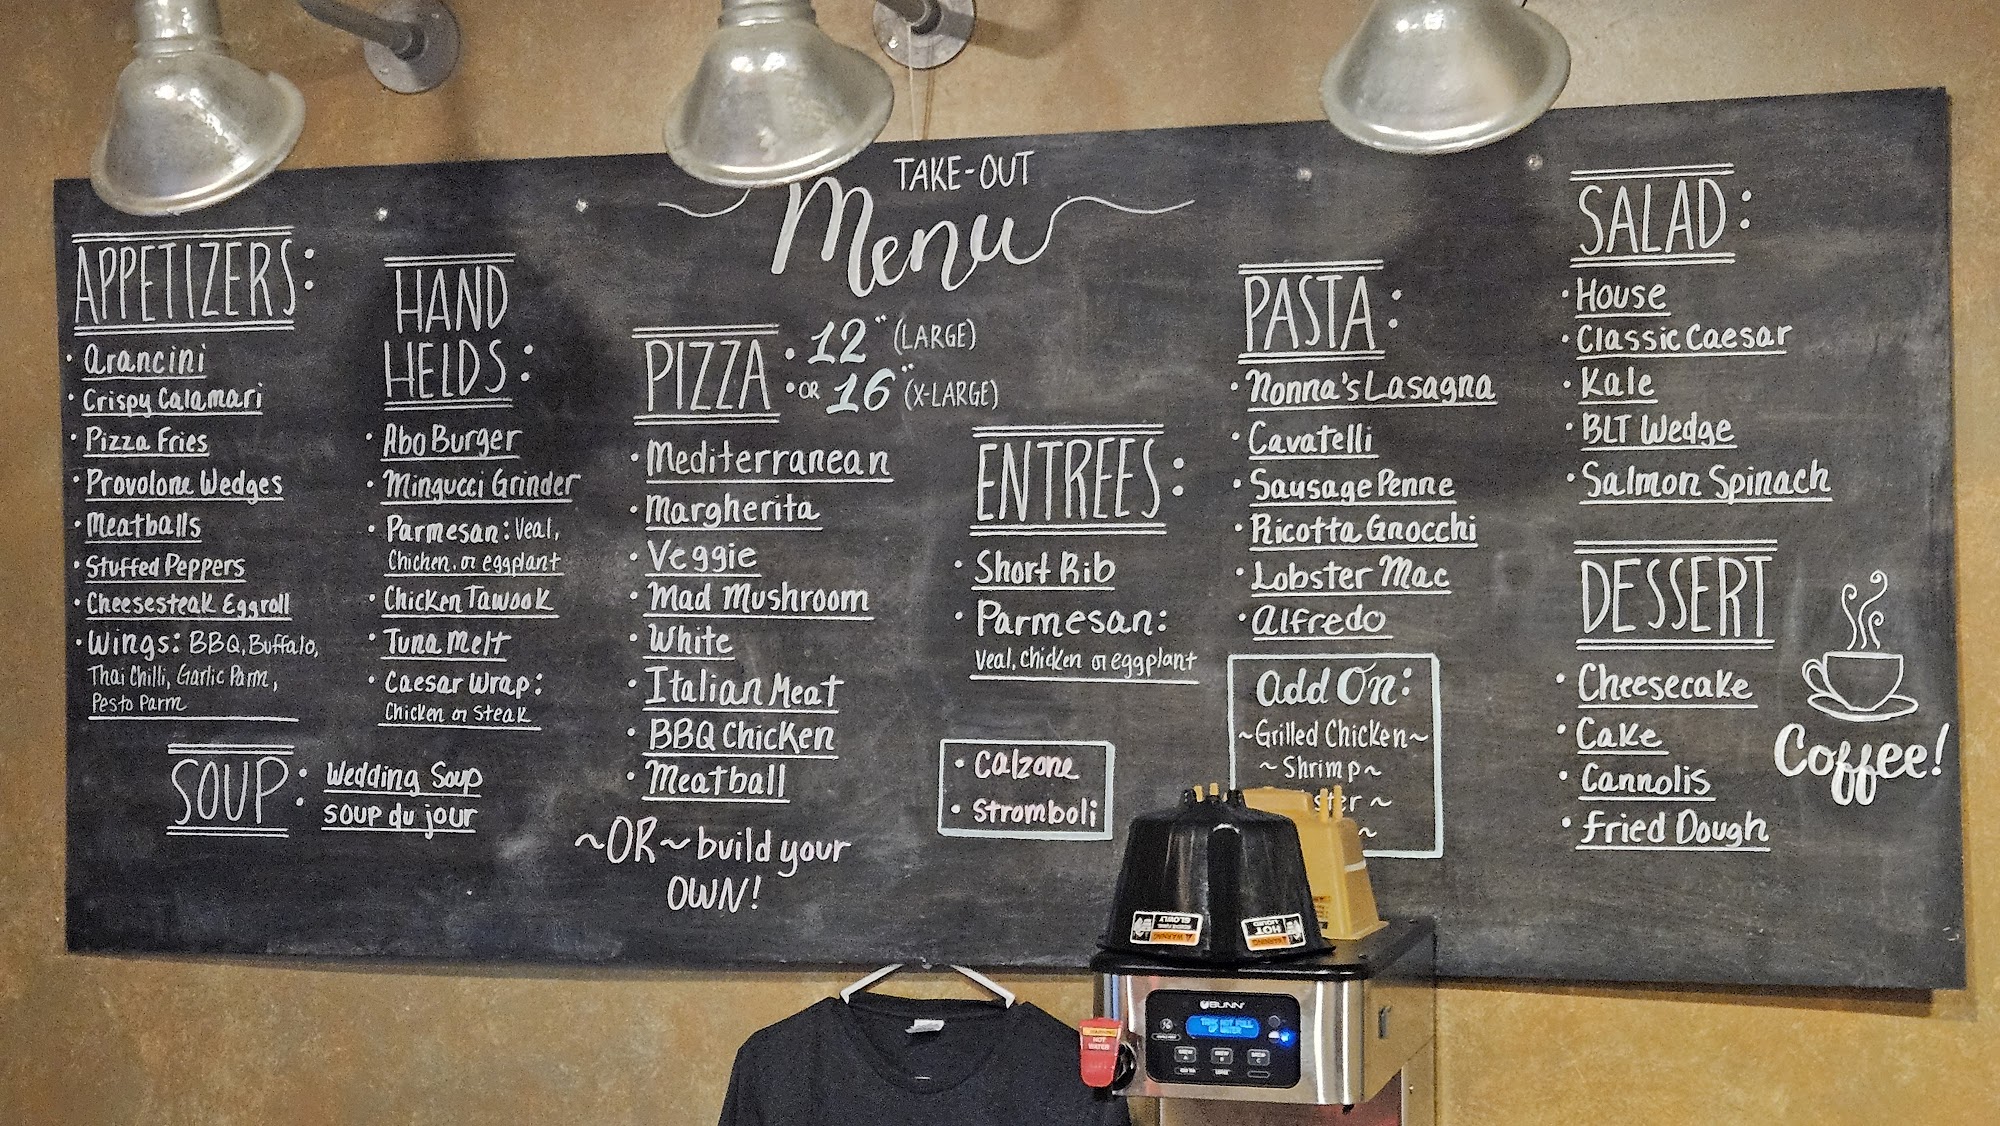 TAKE-OUT
Menu
APPETIZERS:
• Arancini
• Crispy Calamari
• Pizza Fries
• Provolone Wedges
• Meatballs
• Stuffed Peppers
• Cheesesteak Eggroll
• Wings: BBQ, Buffalo,
Thai Chilli, Garlic Parm,
Pesto Parm
SOUP:
Wedding Soup
soup du jour
HAND
HELDS:
• Abo Burger
• Mingucci Grinder
• Parmesan: Veal,
Chicken, or eggplant
• Chicken Tawook
• Tuna Melt
• Caesar Wrap:
Chicken or Steak
PIZZA • 12" (LARGE)
• OR 16" (X-LARGE)
• Mediterranean
• Margherita
• Veggie
• Mad Mushroom
• White
• Italian Meat
• BBQ Chicken
• Meatball
~OR~ build your
OWN!
ENTREES:
• Short Rib
• Parmesan:
Veal, Chicken or eggplant
• Calzone
• Stromboli
PASTA:
• Nonna's Lasagna
• Cavatelli
• Sausage Penne
• Ricotta Gnocchi
• Lobster Mac
• Alfredo
Add On:
~Grilled Chicken~
~Shrimp~
SALAD:
• House
• Classic Caesar
• Kale
• BLT Wedge
• Salmon Spinach
DESSERT
• Cheesecake
• Cake
• Cannolis
• Fried Dough
Coffee!
WARNING
HOT
LIQUID
WARNING
SLOWLY
BUNN
TANK NOT FULL
OF WATER
WARNING
HOT
WATER
BREW
A
BREW
B
BREW
C